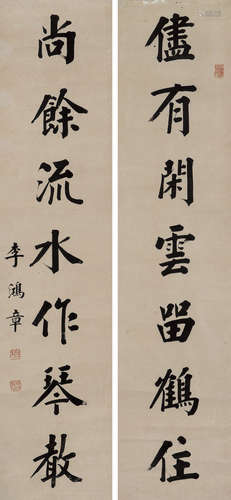 儘有閑雲留鶴住
尚餘流水作琴聲
李鴻章